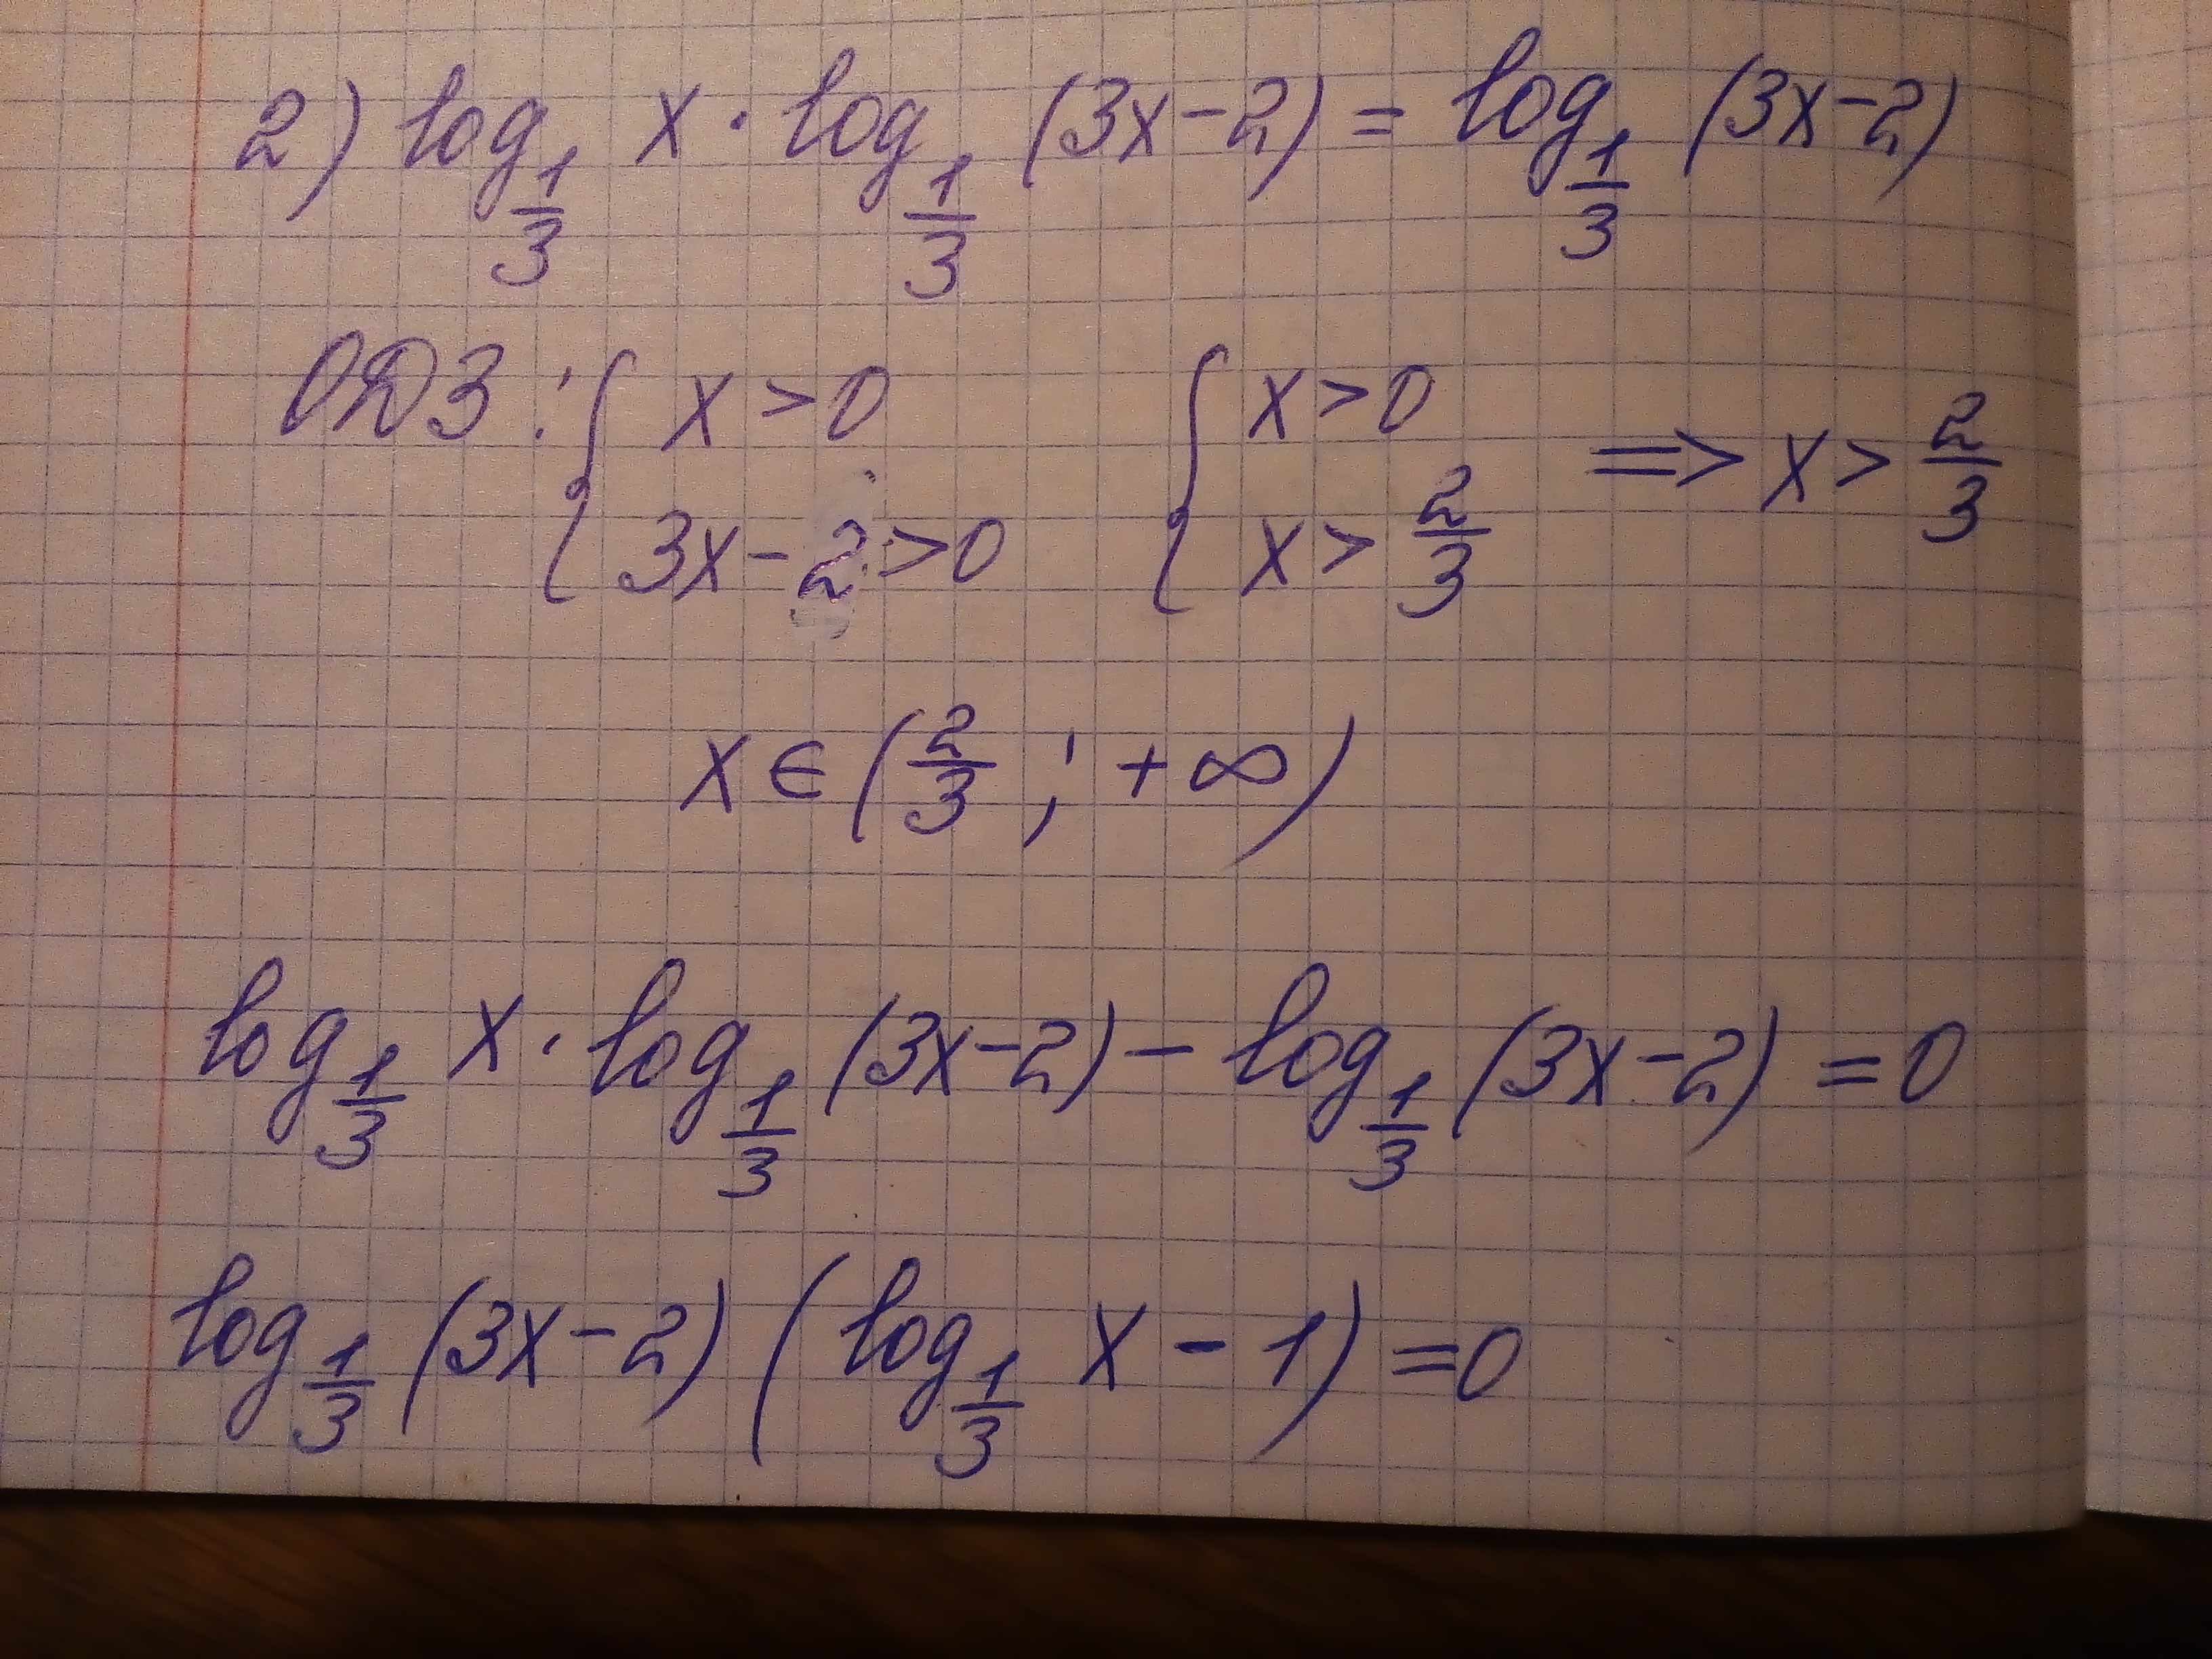 2) log_{1/3} x · log_{1/3} (3x-2) = log_{1/3} (3x-2)
ОДЗ: { x > 0 { x > 0
3x-2 > 0 x > 2/3 => x > 2/3
x ∈ (2/3 ; +∞)
log_{1/3} x · log_{1/3} (3x-2) - log_{1/3} (3x-2) = 0
log_{1/3} (3x-2) (log_{1/3} x - 1) = 0